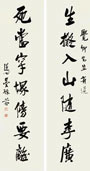 生擬入山隨李廣
死當穿塚傍要離